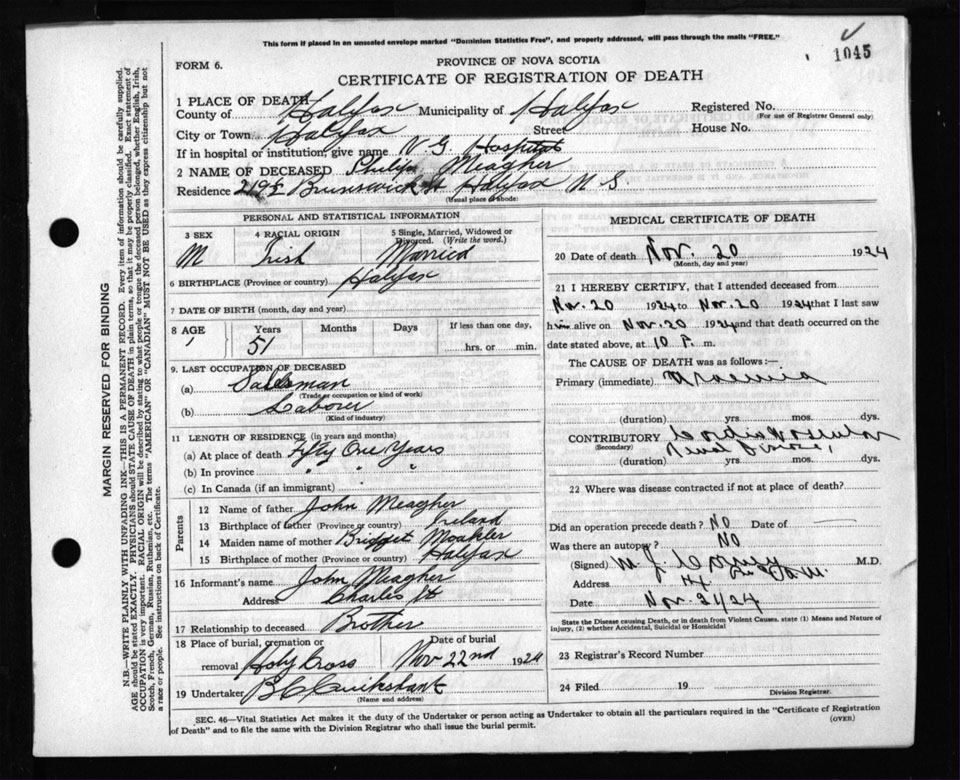 This form if placed in an unsealed envelope marked "Dominion Statistics Free", and properly addressed, will pass through the mails "FREE."
1045
FORM 6.
PROVINCE OF NOVA SCOTIA
CERTIFICATE OF REGISTRATION OF DEATH
1 PLACE OF DEATH
County of Halifax Municipality of Halifax Registered No.
(For use of Registrar General only)
City or Town Halifax Street House No.
If in hospital or institution, give name V. G. Hospital
2 NAME OF DECEASED Philip Meagher
Residence 219½ Brunswick St Halifax N S.
(Usual place of abode)
PERSONAL AND STATISTICAL INFORMATION
3 SEX 4 RACIAL ORIGIN 5 Single, Married, Widowed or Divorced. (Write the word.)
M Irish Married
6 BIRTHPLACE (Province or country) Halifax
7 DATE OF BIRTH (month, day and year)
8 AGE Years Months Days If less than one day,
51 hrs. or min.
9. LAST OCCUPATION OF DECEASED
(a) Salesman
(Trade or occupation or kind of work)
(b) Laborer
(Kind of industry)
11 LENGTH OF RESIDENCE (in years and months)
(a) At place of death Fifty One Years
(b) In province " " "
(c) In Canada (if an immigrant)
Parents
12 Name of father John Meagher
13 Birthplace of father (Province or country) Ireland
14 Maiden name of mother Bridget
15 Birthplace of mother (Province or country) Halifax
16 Informant's name John Meagher
Address Charles St
17 Relationship to deceased Brother
18 Place of burial, cremation or removal Holy Cross Date of burial Nov 22nd 1924
19 Undertaker
(Name and address)
MEDICAL CERTIFICATE OF DEATH
20 Date of death Nov. 20 1924
(Month, day and year)
21 I HEREBY CERTIFY, that I attended deceased from
Nov. 20 1924 to Nov. 20 1924 that I last saw
him alive on Nov. 20 1924 and that death occurred on
date stated above, at 10 P. m.
The CAUSE OF DEATH was as follows:—
Primary (immediate) Uraemia
(duration) yrs. mos. dys.
CONTRIBUTORY Cardio Vascular
(Secondary) Renal Disease,
(duration) yrs. mos. dys.
22 Where was disease contracted if not at place of death?
Did an operation precede death? No Date of
Was there an autopsy? No
(Signed) M. J. M.D.
Address
Date Nov. 21/24
State the Disease causing Death, or in death from Violent Causes, state (1) Means and Nature of
injury, (2) whether Accidental, Suicidal or Homicidal
23 Registrar's Record Number
24 Filed 19
Division Registrar.
SEC. 46—Vital Statistics Act makes it the duty of the Undertaker or person acting as Undertaker to obtain all the particulars required in the "Certificate of Registration
of Death" and to file the same with the Division Registrar who shall issue the burial permit.
(OVER)
MARGIN RESERVED FOR BINDING
N.B.—WRITE PLAINLY WITH UNFADING INK—THIS IS A PERMANENT RECORD. Every item of information should be carefully supplied.
AGE should be stated EXACTLY. PHYSICIANS should STATE CAUSE OF DEATH in plain terms, so that it may be properly classified. Exact statement of
OCCUPATION is very important. RACIAL ORIGIN will be described by stating to what people or tongue the deceased person belonged, whether English, Irish,
Scotch, French, German, Russian, Ruthenian, etc. The terms "AMERICAN" OR "CANADIAN" MUST NOT BE USED as they express citizenship but not
a race or people. See instructions on back of Certificate.